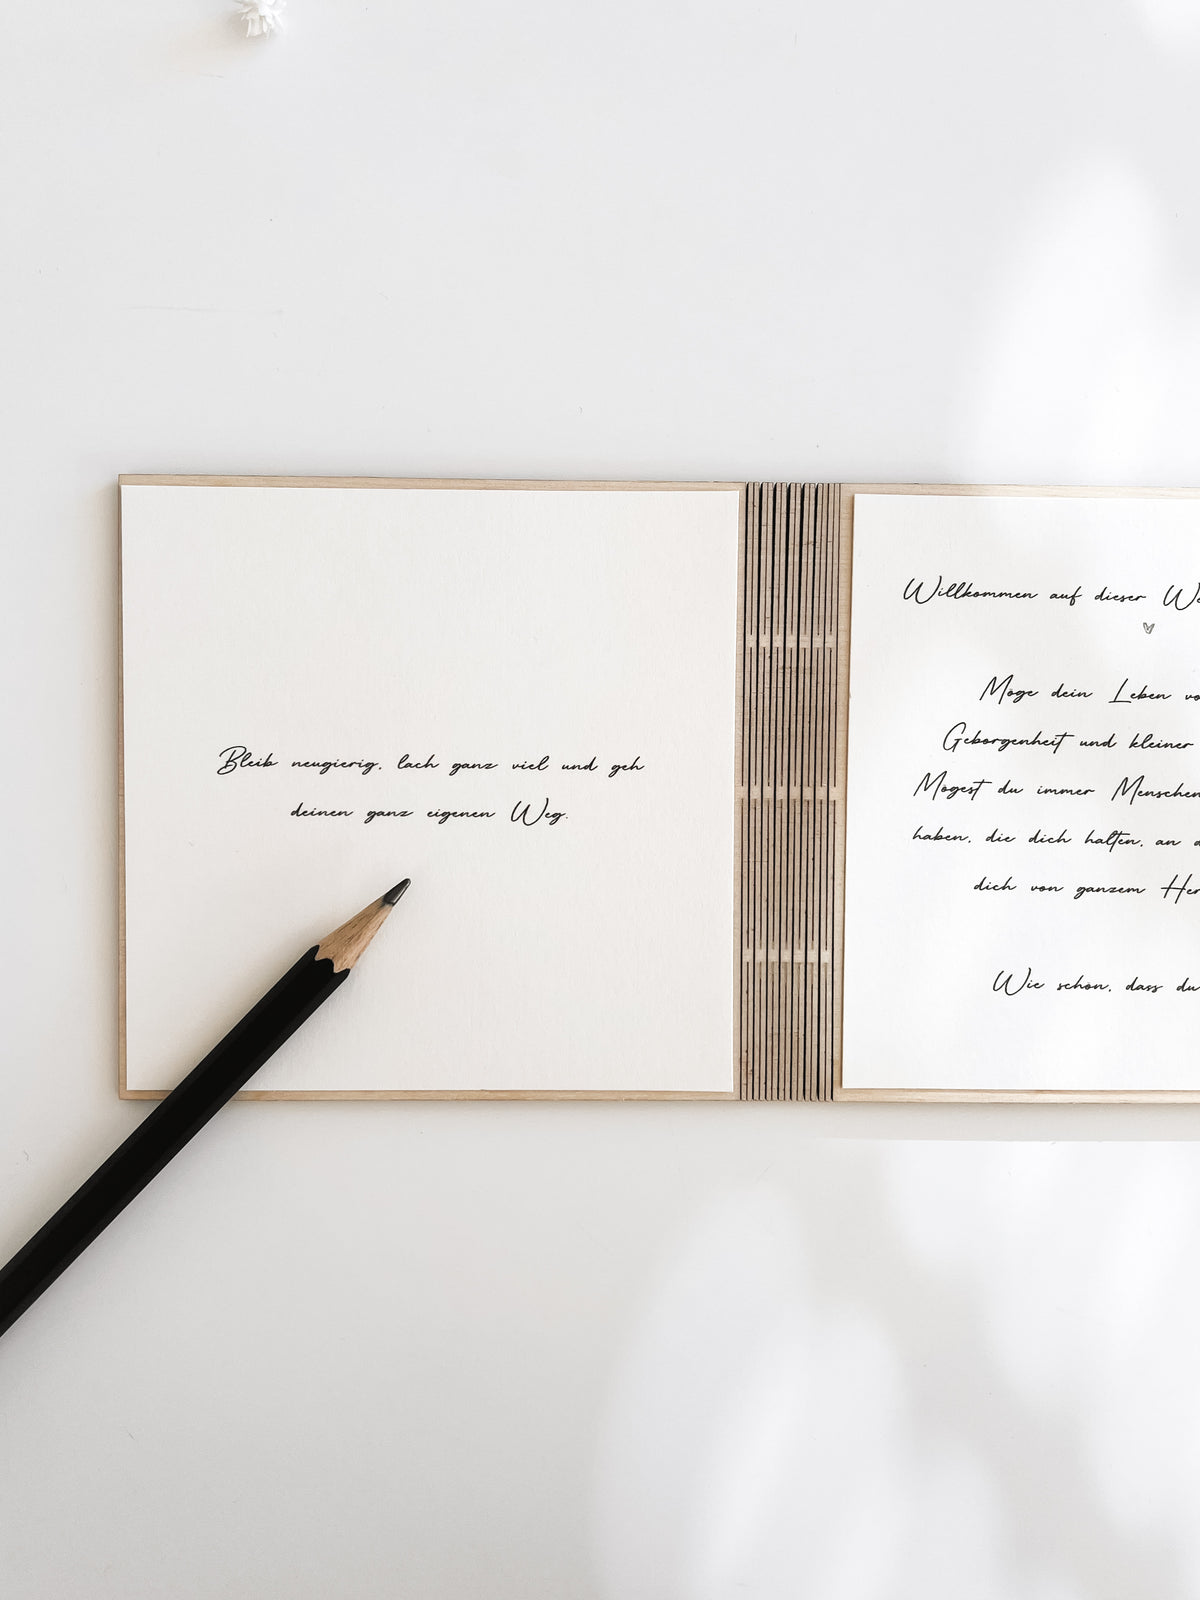 Bleib neugierig, lach ganz viel und geh
deinen ganz eigenen Weg.
Willkommen auf dieser
Möge dein Leben
Geborgenheit und kleiner
Mögest du immer Menschen
haben, die dich halten, an
dich von ganzem
Wie schön, dass du